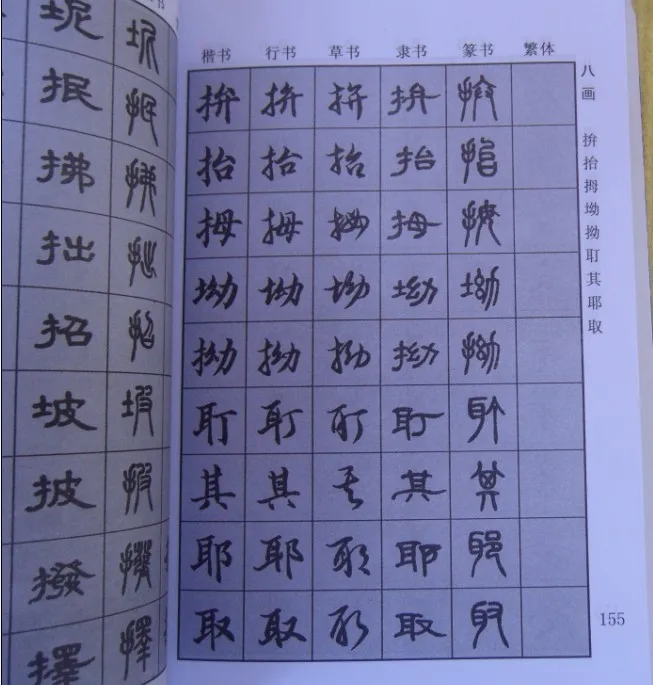 书
坭 坭
抿 抿
拂 拂
拙 拙
招 招
坡 坡
披 披
撥 撥
擇 擇
楷书 行书 草书 隶书 篆书 繁体
拚 拚 拚 拚 拚
抬 抬 抬 抬 抬
拇 拇 拇 拇 拇
坳 坳 坳 坳 坳
拗 拗 拗 拗 拗
耵 耵 耵 耵 耵
其 其 其 其 其
耶 耶 耶 耶 耶
取 取 取 取 取
八画
拚抬拇坳拗耵其耶取
155